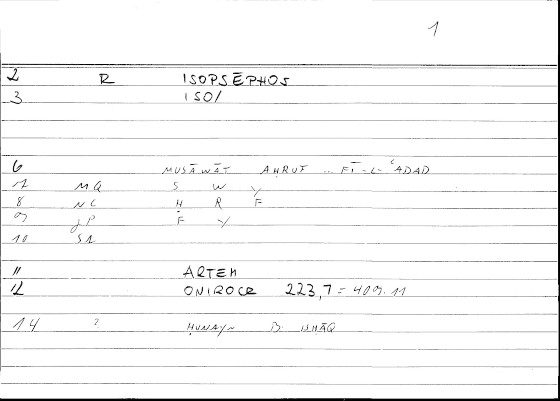 1
2 R ISOPSĒPHOS
3 ISO/
6 MUSĀWĀT AḤRUF ... FĪ-L-ʿADAD
7 MQ S W Y
8 NC Ḥ R F
9 JP F Y
10 S1
11 ARTEM
12 ONIROCR 223,7 = 409.11
14 ? ḤUNAYN B. ISḤĀQ